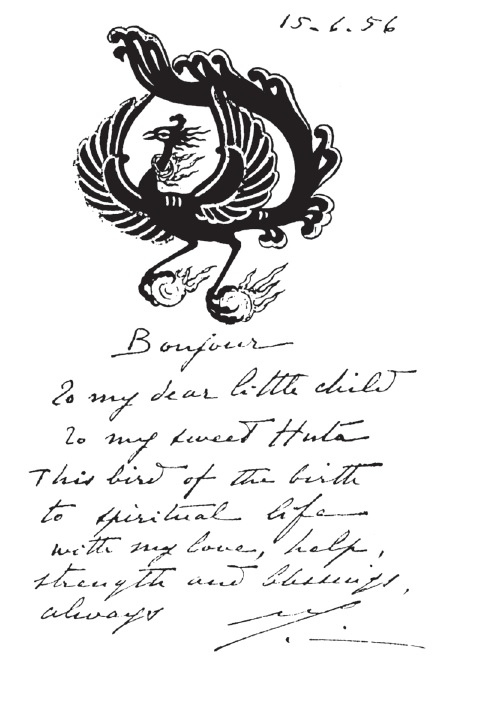 15-6-56
Bonjour
To my dear little child
To my sweet Huta
This bird of the birth
to spiritual life
with my love, help,
strength and blessings,
always